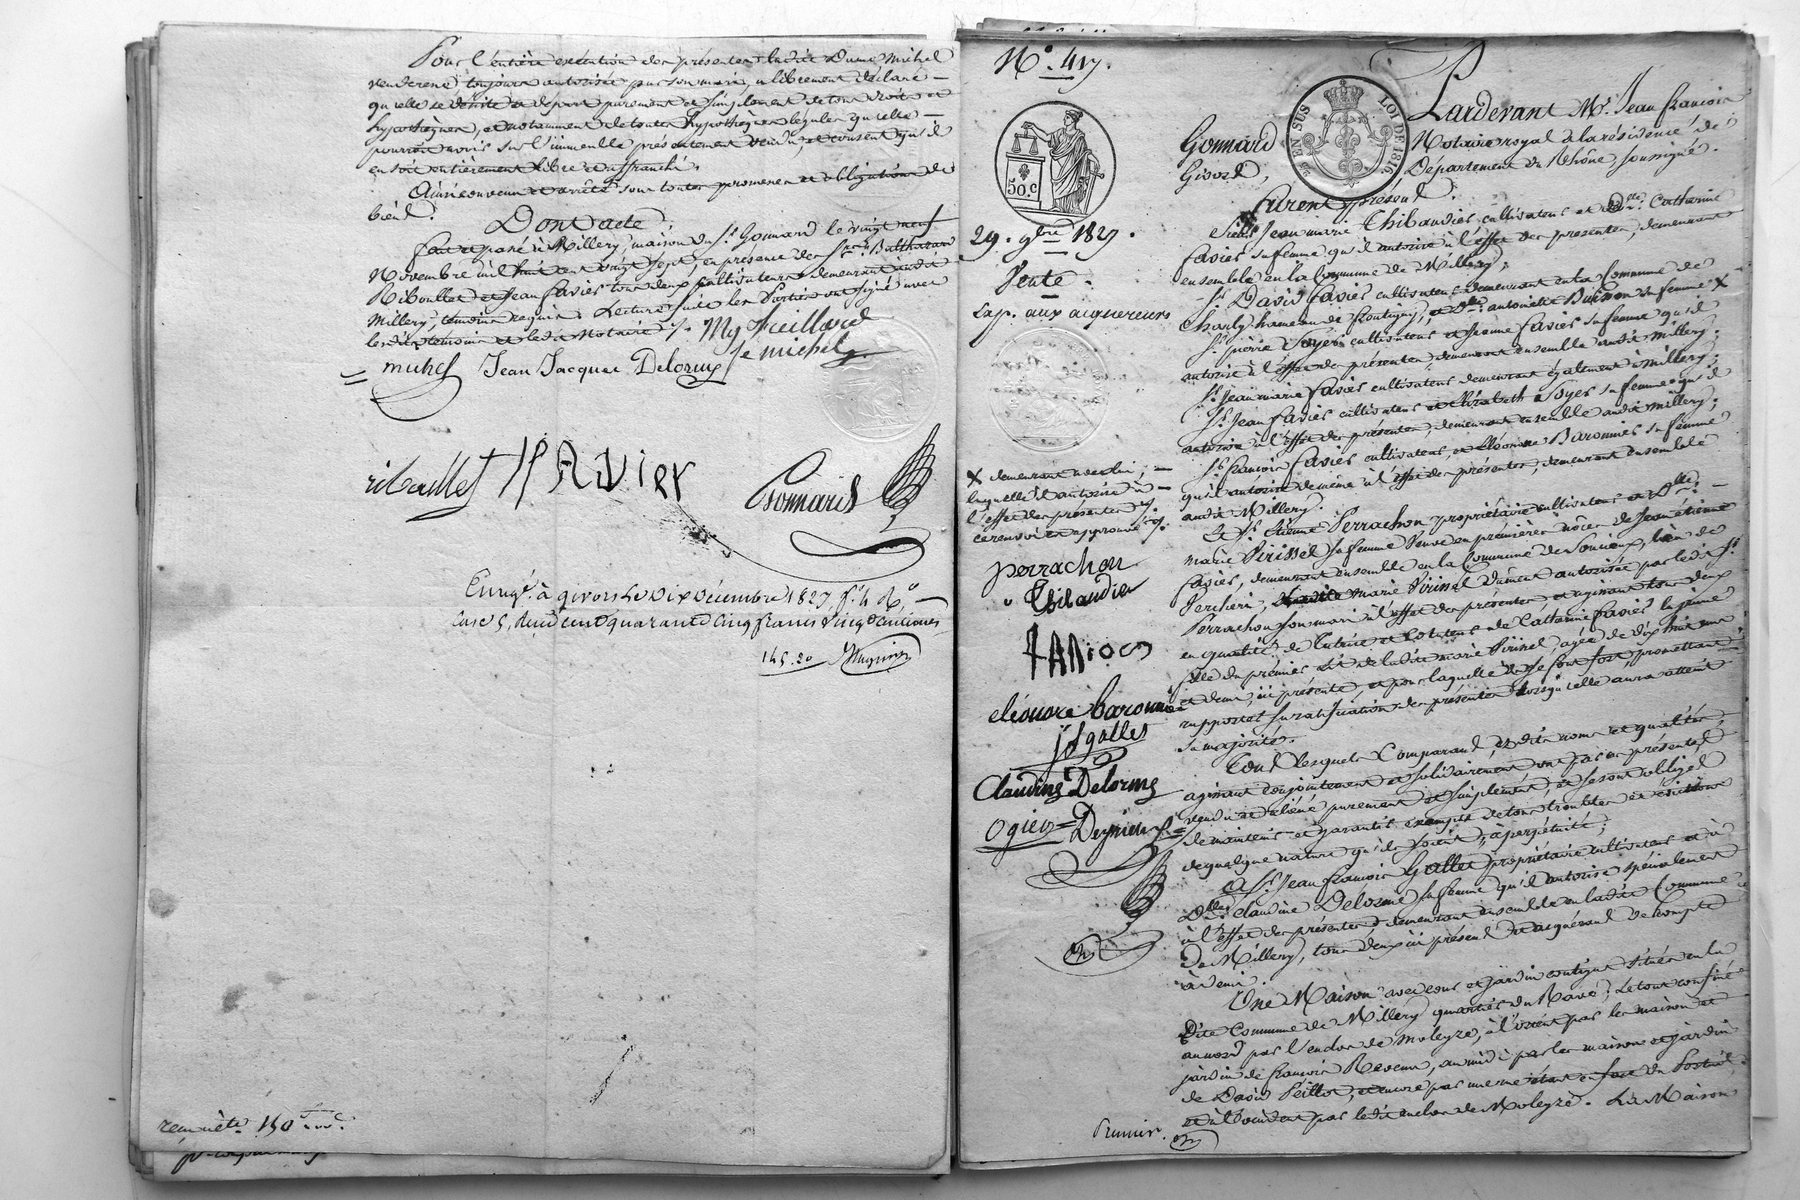 Pour l'entière exécution des présentes ladite Dame Michel
venderesse toujours autorisée par son mari, a librement déclaré
qu'elle se désiste et départ purement et simplement de tous droits et
hypothèques, et notamment de toutes hypothèques légales qu'elle
pourrait avoir sur l'immeuble présentement vendu, et consent qu'il
en soit entièrement libre et affranchi.
Ainsi convenu et arrêté sous toutes promesses et obligations de
biens.
Dont acte
fait et passé à Millery, maison du Sr. Gonnard le vingt neuf
Novembre mil huit cent vingt sept, en présence des Srs. Balthazard
Riboullet et Jean Favier tous deux cultivateurs demeurant audit
Millery, témoins requis. Lecture faite les Parties ont signé avec
les dits témoins et ledit Notaire ./.
michel Jean Jacque Delorme fe michel
riboullet JFAVier Gonnard
Enreg. à givors le Dix Décembre 1827, fo. 4 Ro.
Case 5, Reçu cent quarante cinq francs vingt centimes
145.20
No. 417.
50.c
EN SUS LOI DE 1816
29. 9bre 1827.
Vente.
Exp. aux acquereurs
X demeurant avec lui,
laquelle il autorise à
l'effet des présentes
ce renvoi est approuvé
perrachon
Thibaudier
FAVior
eléonore baronnier
jf gallet
Claudine Delorme
Ogier
Pardevant Me. Jean françois
Gonnard Notaire royal à la résidence de
Givors, Département du Rhône, soussigné.
Furent présens
Sieur Jean marie Thibaudier cultivateur et Dlle. Catherine
favier sa femme qu'il autorise à l'effet des présentes, demeurant
ensemble en la Commune de Millery;
Sr. David favier cultivateur demeurant en la Commune de
Charly hameau de fontigny, et Dme. antoinette Buisson sa femme X
Sr. pierre Soyer cultivateur et Jeanne favier sa femme qu'il
autorise à l'effet des présentes, demeurant ensemble audit Millery.
Sr. Jean marie favier cultivateur demeurant également à Millery;
Sr. Jean favier cultivateur et Elizabeth Soyer sa femme qu'il
autorise à l'effet des présentes, demeurant ensemble audit Millery;
Sr. françois favier cultivateur, et Eléonore Baronnier sa femme
qu'il autorise de même à l'effet des présentes, demeurant ensemble
audit Millery.
Et Sr. Etienne Perrachon propriétaire cultivateur et Dlle.
marie Pirissel sa femme Veuve en premières nôces de Jean étienne
favier, demeurant ensemble en la Commune de Soucieux, lieu de
Verchéri, marie Pirissel dument autorisée par ledit Sr.
Perrachon son mari à l'effet des présentes et agissant tous deux
en qualité de Tutrice et Cotuteur de Catherine favier la jeune
fille du premier Lit de ladite marie Pirissel, agée de dix huit ans
et demi, ici présente, et pour laquelle ils se font fort, promettant
rapporter sa ratification des présentes lorsqu'elle aura atteint
sa majorité.
Tous lesquels Comparans, esdits noms et qualités,
agissant conjointement et solidairement ont par ces présentes
vendu et aliéné purement et simplement, et se sont obligés
de maintenir et garantir exempts de tous troubles et évictions
de quelque nature qu'ils soient, à perpétuité,
a Sr. Jean françois Gallet propriétaire cultivateur et à
Dlle. Claudine Delorme sa femme qu'il autorise spécialement
à l'effet des présentes demeurant ensemble en ladite Commune
de Millery, tous deux ici présens et acquérans de compte
à demi.
Une Maison avec cour et jardin contigus situés en la
Dite Commune de Millery quartier du Ravé, Le tout confiné
au nord par l'enclos de Moleyze, à l'orient par les maison et
jardin de françois Revenu, au midi par les maison et jardin
de David Peillot, et encore par une
et à l'occident par ledit enclos de Moleyze. La Maison
Premier.